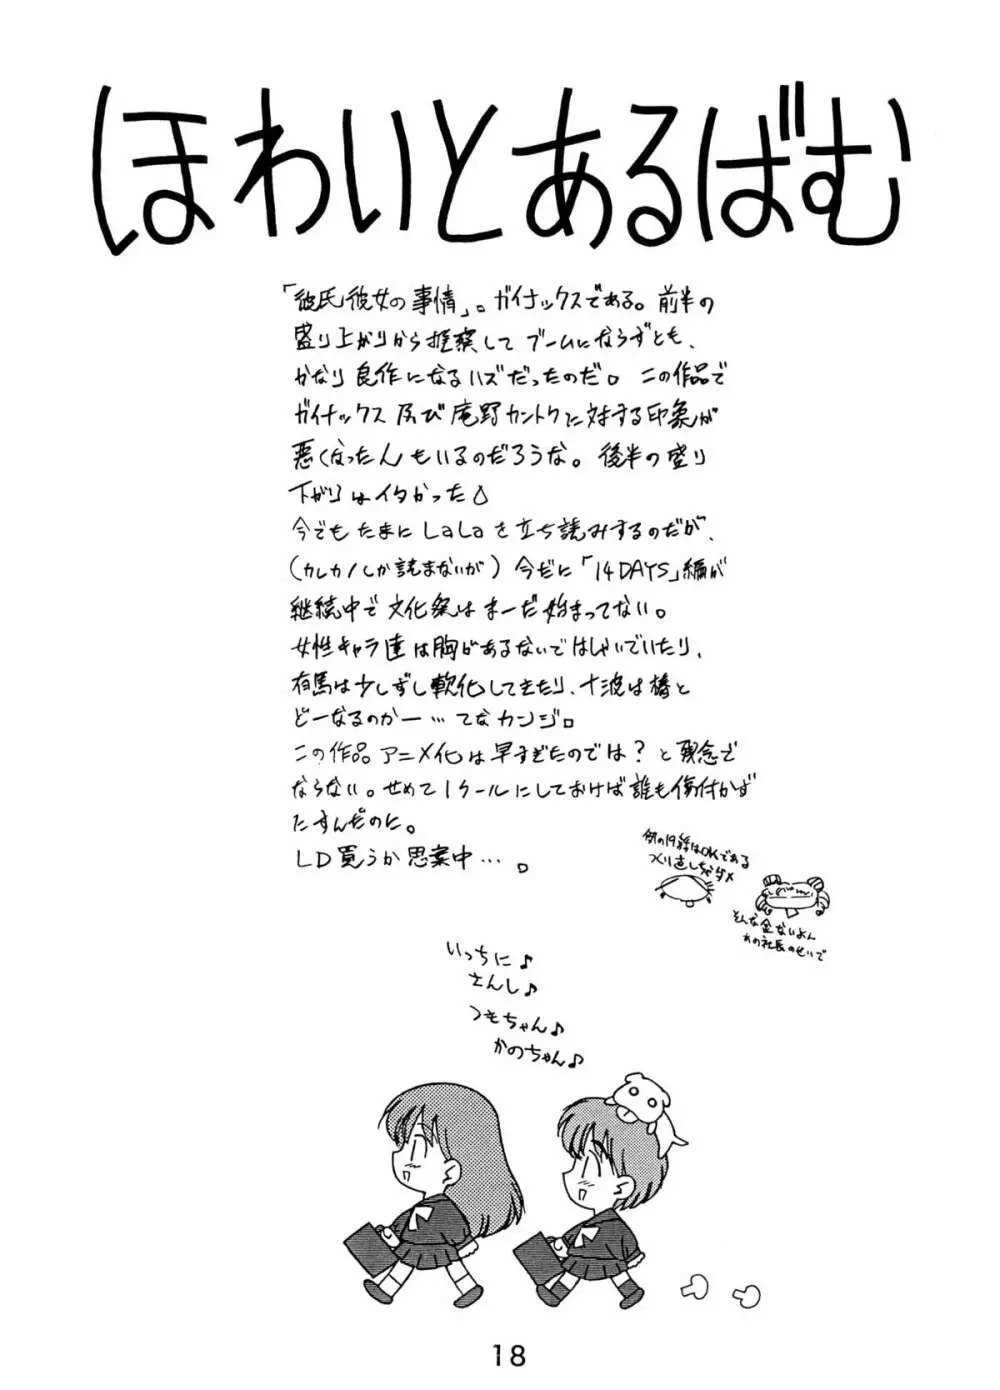 ほわいとあるばむ
「彼氏彼女の事情」。ガイナックスである。前半の
盛り上がりから推察して ブームにならずとも、
かなり良作になるハズだったのだ。この作品で
ガイナックス及び庵野カントクに対する印象が
悪くなったんもいるのだろうな。後半の盛り
下がりはイタかった
今でもたまにLaLaを立ち読みするのだが、
(カレカノしか読まないが) 今だに「14DAYS」編が
継続中で文化祭はまーだ始まってない。
女性キャラ達は胸があるないではしゃいでいたり、
有馬は少しずし軟化してきたり、十波は椿と
どーなるのかー…てなカンジ。
この作品アニメ化は早すぎたのでは?と残念で
ならない。せめて1クールにしておけば誰も傷付かず
たすんだのに。
LD買うか思案中…。
例の19話はOKである
メリ直しちゃダメ
そんな金ないよん
あの社長のせいで
いっちに♪
さんし♪
つもちゃん♪
かのちゃん♪
18